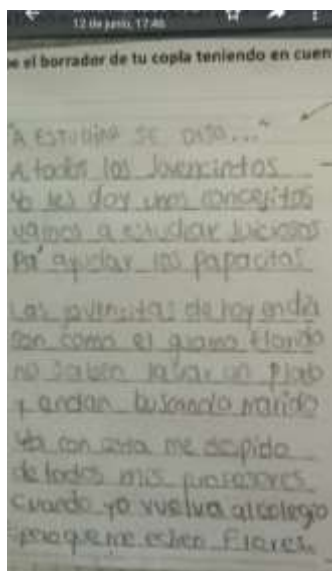 12 de junio, 17:46
e el borrador de tu copla teniendo en cuen
"A ESTUDIAR SE DIJO..."
A todos los Jovencintos
Yo les doy unos concejitos
vamos a estudiar juiciosos
Pa' ayudar los papacitos
Las jovencitas de hoy en dia
son como el gramo Florido
no saben lavar un Plato
y andan buscando marido
Ya con esta me despido
de todos mis profesores
cuando yo vuelva al colegio
que me echen Flores.